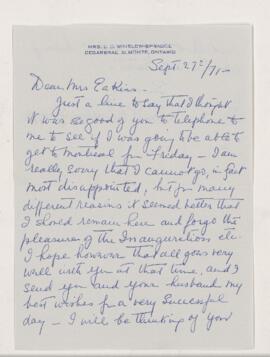 MRS. L. C. WINSLOW-SPRAGGE
CEDARBRAE, ALMONTE, ONTARIO
Sept. 27th/71 -
Dear Mrs Eakins -
Just a line to say that I thought
it was so good of you to telephone to
me to see if I was going to be able to
get to Montreal for Friday - I am
really sorry that I cannot go, in fact
most disappointed, but for many
different reasons it seemed better that
I should remain here and forgo the
pleasures of the Inauguration etc.
I hope however that all goes very
well with you at that time, and I
send you and your husband my
best wishes for a very successful
day - I will be thinking of you